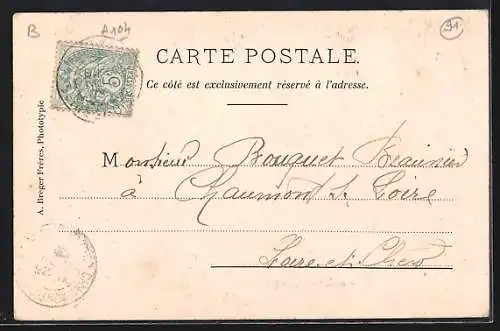 B
A104
91
CARTE POSTALE.
Ce côté est exclusivement réservé à l'adresse.
A. Breger Frères, Phototypie
5
Monsieur Bouquet Beaunier
à Chaumont S. Loire
Loire et Cher